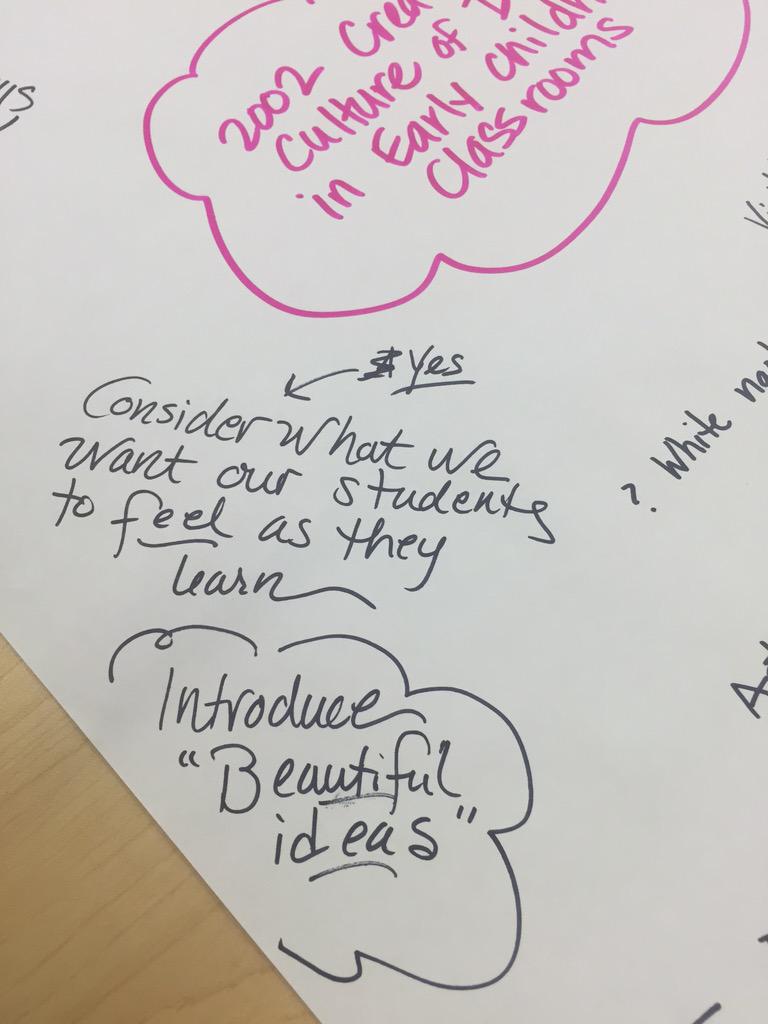 2002
Culture of
in Early
Classrooms
Yes
Consider what we
want our students
to feel as they
learn
Introduce
"Beautiful
ideas"
? White